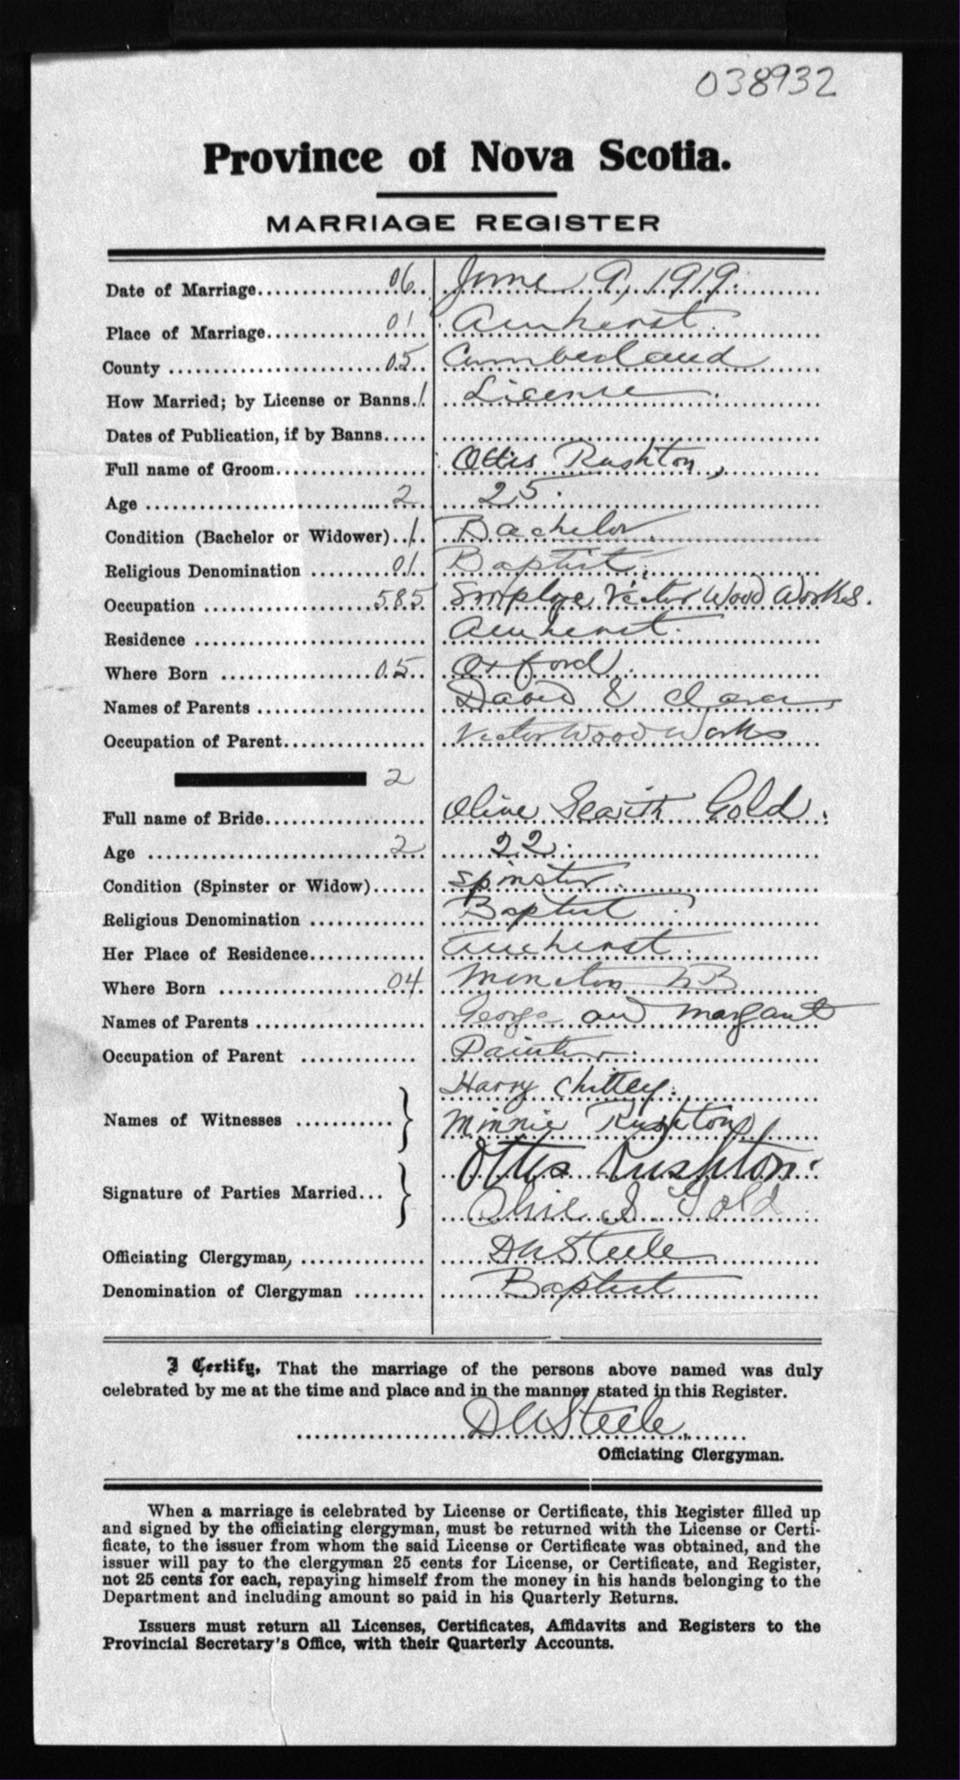 038932
Province of Nova Scotia.
MARRIAGE REGISTER
Date of Marriage 06 June 9, 1919.
Place of Marriage 01 Amherst.
County 05 Cumberland
How Married; by License or Banns. 1 License.
Dates of Publication, if by Banns
Full name of Groom Ottis Rushton,
Age 2 25.
Condition (Bachelor or Widower) 1 Bachelor.
Religious Denomination 01 Baptist.
Occupation 585 Victor Wood Works.
Residence Amherst.
Where Born 05 Oxford.
Names of Parents David & Clara
Occupation of Parent Victor Wood Works
2
Full name of Bride Olive Gold.
Age 2 22.
Condition (Spinster or Widow) Spinster.
Religious Denomination Baptist.
Her Place of Residence Amherst.
Where Born 04 Moncton NB
Names of Parents George and Margaret
Occupation of Parent Painter.
Harry Chittey.
Names of Witnesses }
Minnie Rushton
Ottis Rushton.
Signature of Parties Married... }
Olive S. Gold
Officiating Clergyman, DA Steele
Denomination of Clergyman Baptist
I Certify, That the marriage of the persons above named was duly
celebrated by me at the time and place and in the manner stated in this Register.
DA Steele,
Officiating Clergyman.
When a marriage is celebrated by License or Certificate, this Register filled up
and signed by the officiating clergyman, must be returned with the License or Certi-
ficate, to the issuer from whom the said License or Certificate was obtained, and the
issuer will pay to the clergyman 25 cents for License, or Certificate, and Register,
not 25 cents for each, repaying himself from the money in his hands belonging to the
Department and including amount so paid in his Quarterly Returns.
Issuers must return all Licenses, Certificates, Affidavits and Registers to the
Provincial Secretary's Office, with their Quarterly Accounts.